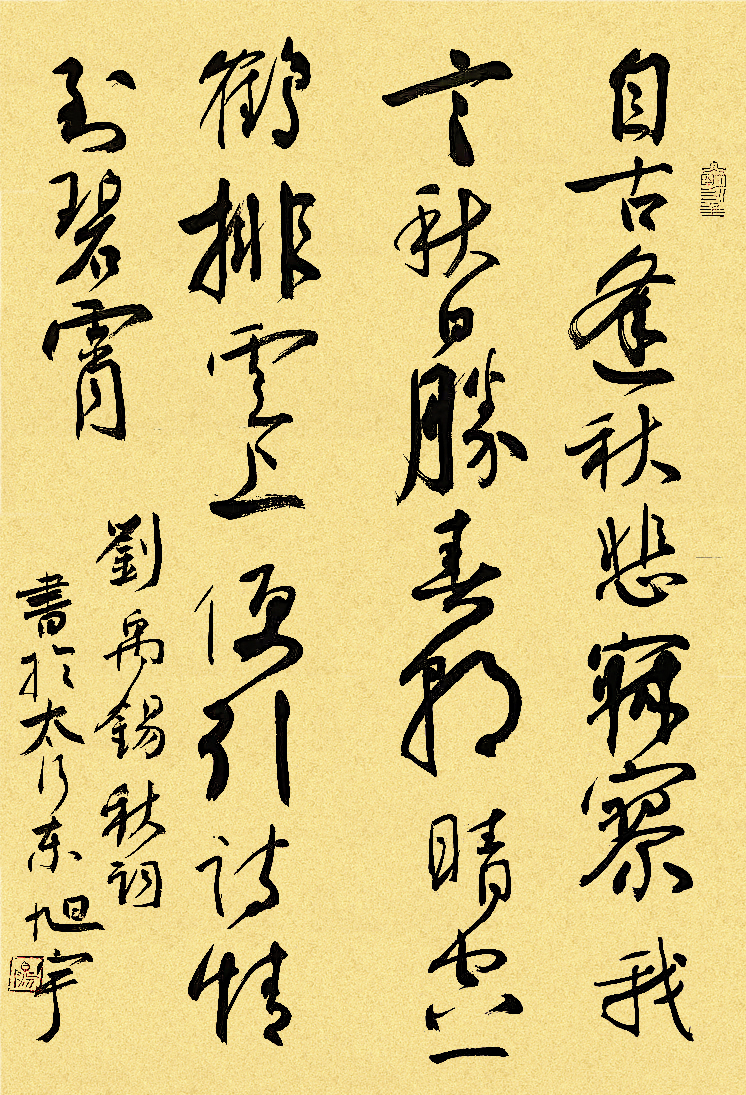 自古逢秋悲寂寥我
言秋日勝春朝晴空一
鶴排雲上便引詩情
到碧霄
劉禹錫秋詞
書於太行东旭宇